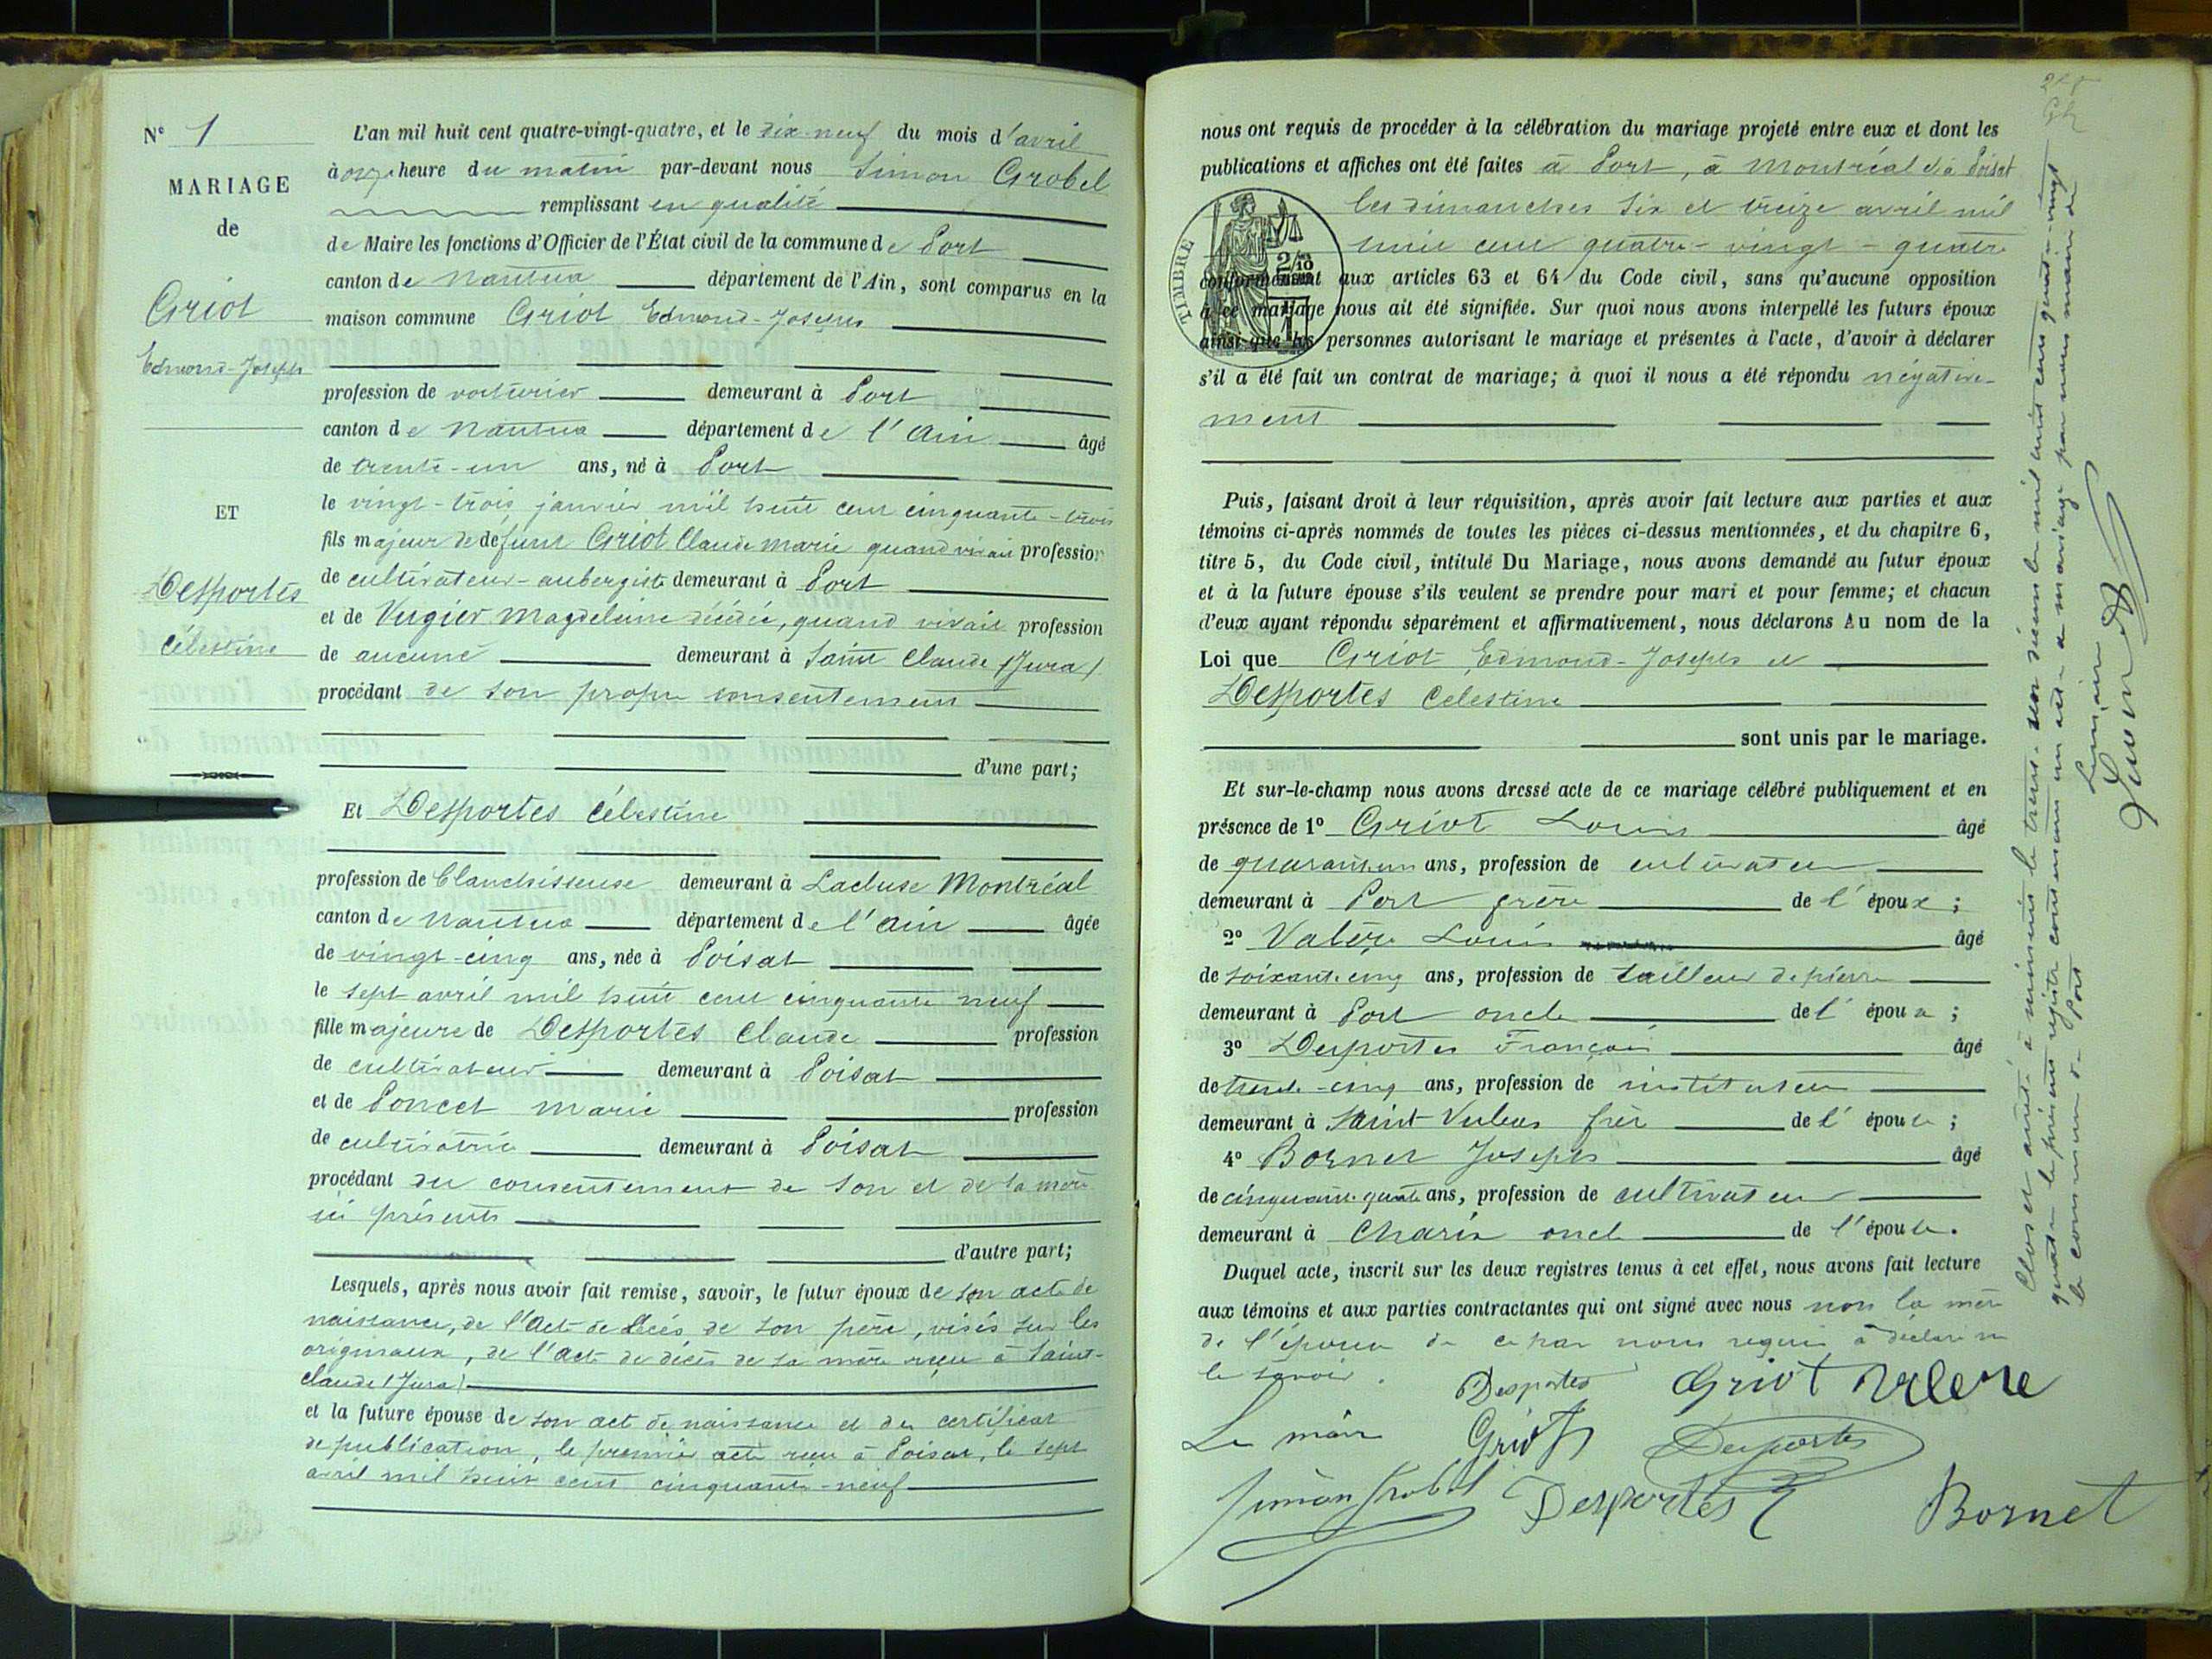 N° 1
MARIAGE
de
Griot
Edmond-Joseph
ET
Desportes
Célestine
L'an mil huit cent quatre-vingt-quatre, et le dix-neuf du mois d'avril
à onze heure du matin par-devant nous Simon Grobel
remplissant en qualité
de Maire les fonctions d'Officier de l'État civil de la commune de Port
canton de Nantua département de l'Ain, sont comparus en la
maison commune Griot Edmond-Joseph
profession de voiturier demeurant à Port
canton de Nantua département de l'Ain âgé
de trente-un ans, né à Port
le vingt-trois janvier mil huit cent cinquante-trois
fils majeur de défunt Griot Claude Marie quand vivait profession
de cultivateur-aubergiste demeurant à Port
et de Vugier Magdeleine décédée, quand vivait profession
de aucune demeurant à Saint Claude (Jura)
procédant de son propre consentement
d'une part;
Et Desportes Célestine
profession de blanchisseuse demeurant à Lacluse Montréal
canton de Nantua département de l'Ain âgée
de vingt-cinq ans, née à Poisat
le sept avril mil huit cent cinquante neuf
fille majeure de Desportes Claude profession
de cultivateur demeurant à Poisat
et de Poncet Marie profession
de cultivatrice demeurant à Poisat
procédant du consentement de son et de sa mère
ici présents
d'autre part;
Lesquels, après nous avoir fait remise, savoir, le futur époux de son acte de
naissance, de l'acte de décès de son père, visés sur les
originaux, de l'acte de décès de sa mère reçu à Saint-
Claude (Jura)
et la future épouse de son acte de naissance et du certificat
de publication, le premier acte reçu à Poisat, le sept
avril mil huit cent cinquante-neuf
nous ont requis de procéder à la célébration du mariage projeté entre eux et dont les
publications et affiches ont été faites à Port, à Montréal et à Poisat
les dimanches six et treize avril mil
huit cent quatre-vingt-quatre
TIMBRE
2/10
conformément aux articles 63 et 64 du Code civil, sans qu'aucune opposition
à ce mariage nous ait été signifiée. Sur quoi nous avons interpellé les futurs époux
ainsi que les personnes autorisant le mariage et présentes à l'acte, d'avoir à déclarer
s'il a été fait un contrat de mariage; à quoi il nous a été répondu négative-
ment
Puis, faisant droit à leur réquisition, après avoir fait lecture aux parties et aux
témoins ci-après nommés de toutes les pièces ci-dessus mentionnées, et du chapitre 6,
titre 5, du Code civil, intitulé Du Mariage, nous avons demandé au futur époux
et à la future épouse s'ils veulent se prendre pour mari et pour femme; et chacun
d'eux ayant répondu séparément et affirmativement, nous déclarons Au nom de la
Loi que Griot Edmond-Joseph et
Desportes Celestine
sont unis par le mariage.
Et sur-le-champ nous avons dressé acte de ce mariage célébré publiquement et en
présence de 1° Griot Louis âgé
de quarante un ans, profession de cultivateur
demeurant à Port frère de l'époux;
2° Valère Louis âgé
de soixante-cinq ans, profession de tailleur de pierre
demeurant à Port oncle de l'époux;
3° Desportes François âgé
de trente-cinq ans, profession de instituteur
demeurant à Saint-Vulbas frère de l'épouse;
4° Bornet Joseph âgé
de cinquante-quatre ans, profession de cultivateur
demeurant à Charix oncle de l'épouse.
Duquel acte, inscrit sur les deux registres tenus à cet effet, nous avons fait lecture
aux témoins et aux parties contractantes qui ont signé avec nous non la mère
de l'épouse de ce par nous requis à déclaré ne
le savoir.
Desportes Griot Valere
Le maire Griot Desportes
Simon Grobel Desportes Bornet
Clos et arrêté à minuit le trente-un décembre mil huit cent quatre-vingt
quatre le présent registre contenant un acte de mariage par nous maire de
la commune de Port
Le maire